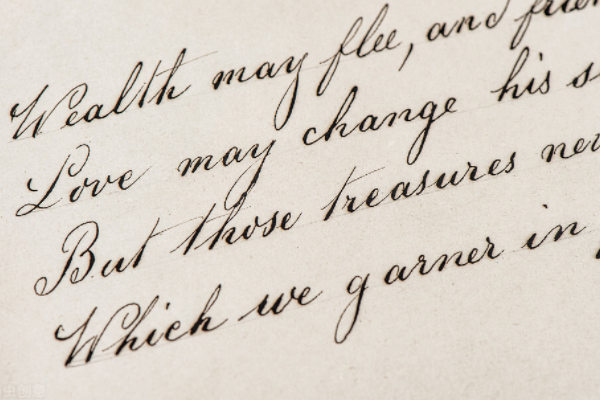 Wealth may flee, and
Love may change his
But those treasures
Which we garner in